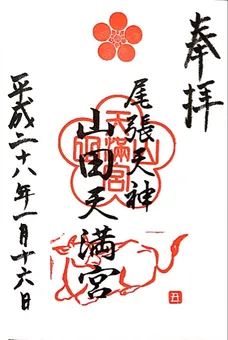 奉拝
尾張天神
山田天満宮
平成二十八年一月十六日
山田天満宮
五